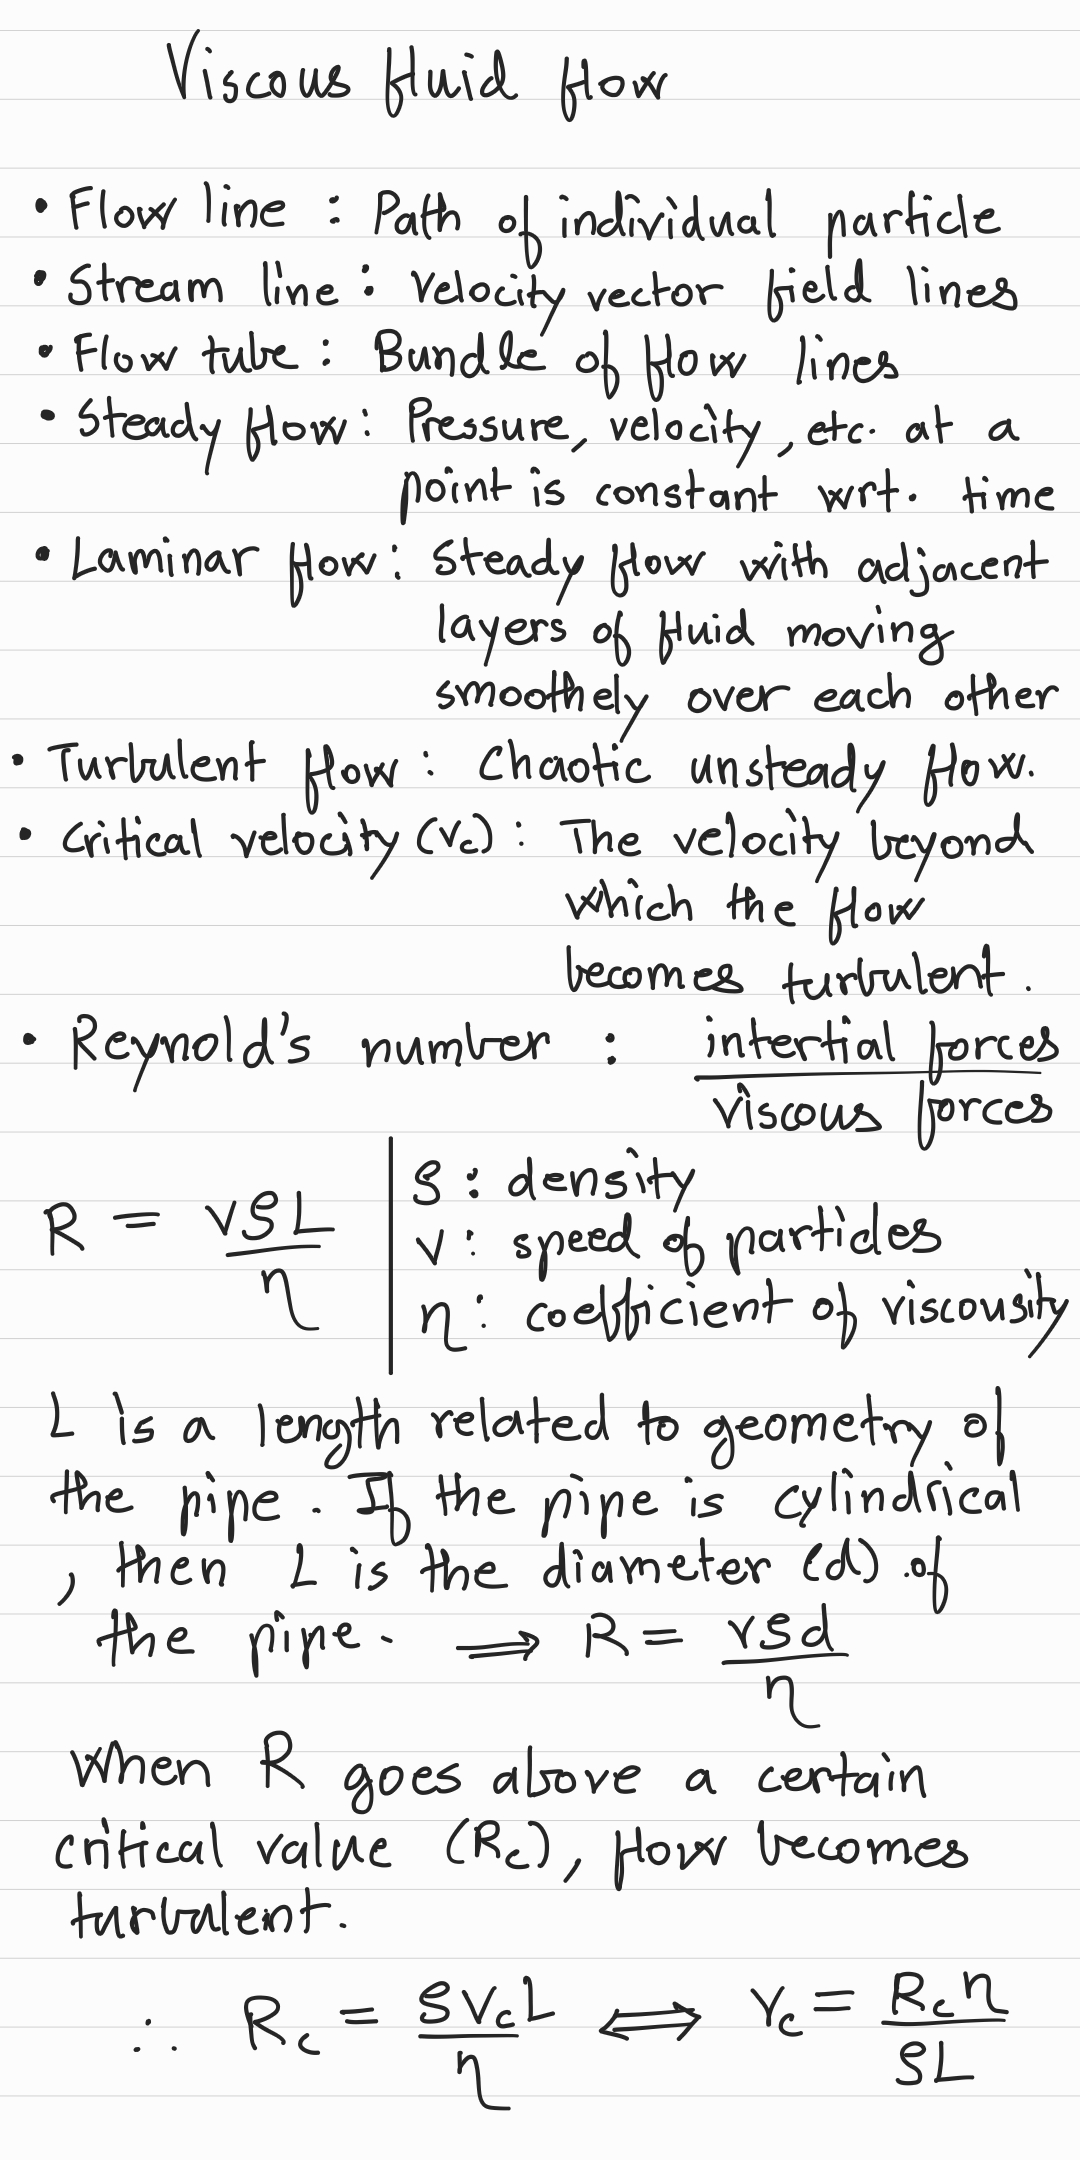 Viscous fluid flow
• Flow line : Path of individual particle
• Stream line : velocity vector field lines
• Flow tube : Bundle of flow lines
• Steady flow : Pressure, velocity, etc. at a
point is constant wrt. time
• Laminar flow : steady flow with adjacent
layers of fluid moving
smoothely over each other
• Turbulent flow : Chaotic unsteady flow.
• Critical velocity (vc) : The velocity beyond
which the flow
becomes turbulent.
• Reynold's number : intertial forces / viscous forces
R = vρL / η
ρ : density
v : speed of particles
η : coefficient of viscousity
L is a length related to geometry of
the pipe. If the pipe is cylindrical
, then L is the diameter (d) of
the pipe. ⟹ R = vρd / η
When R goes above a certain
critical value (Rc), flow becomes
turbulent.
∴ Rc = ρvcL / η ⟺ vc = Rcη / ρL